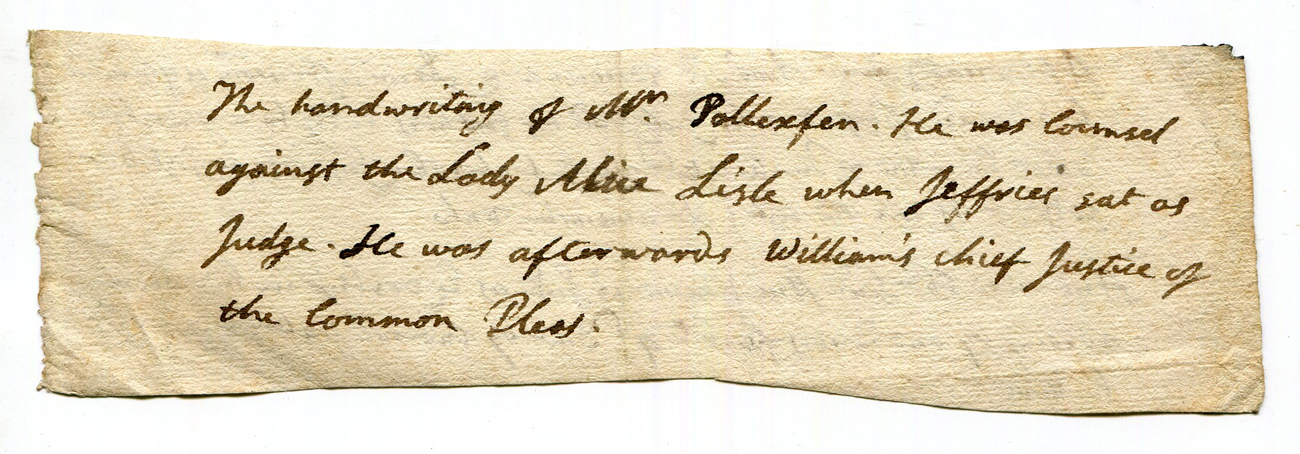 The handwriting of Mr. Pollexfen. He was Counsel
against the Lady Alice Lisle when Jeffries sat as
Judge. He was afterwards William's chief Justice of
the Common Pleas.